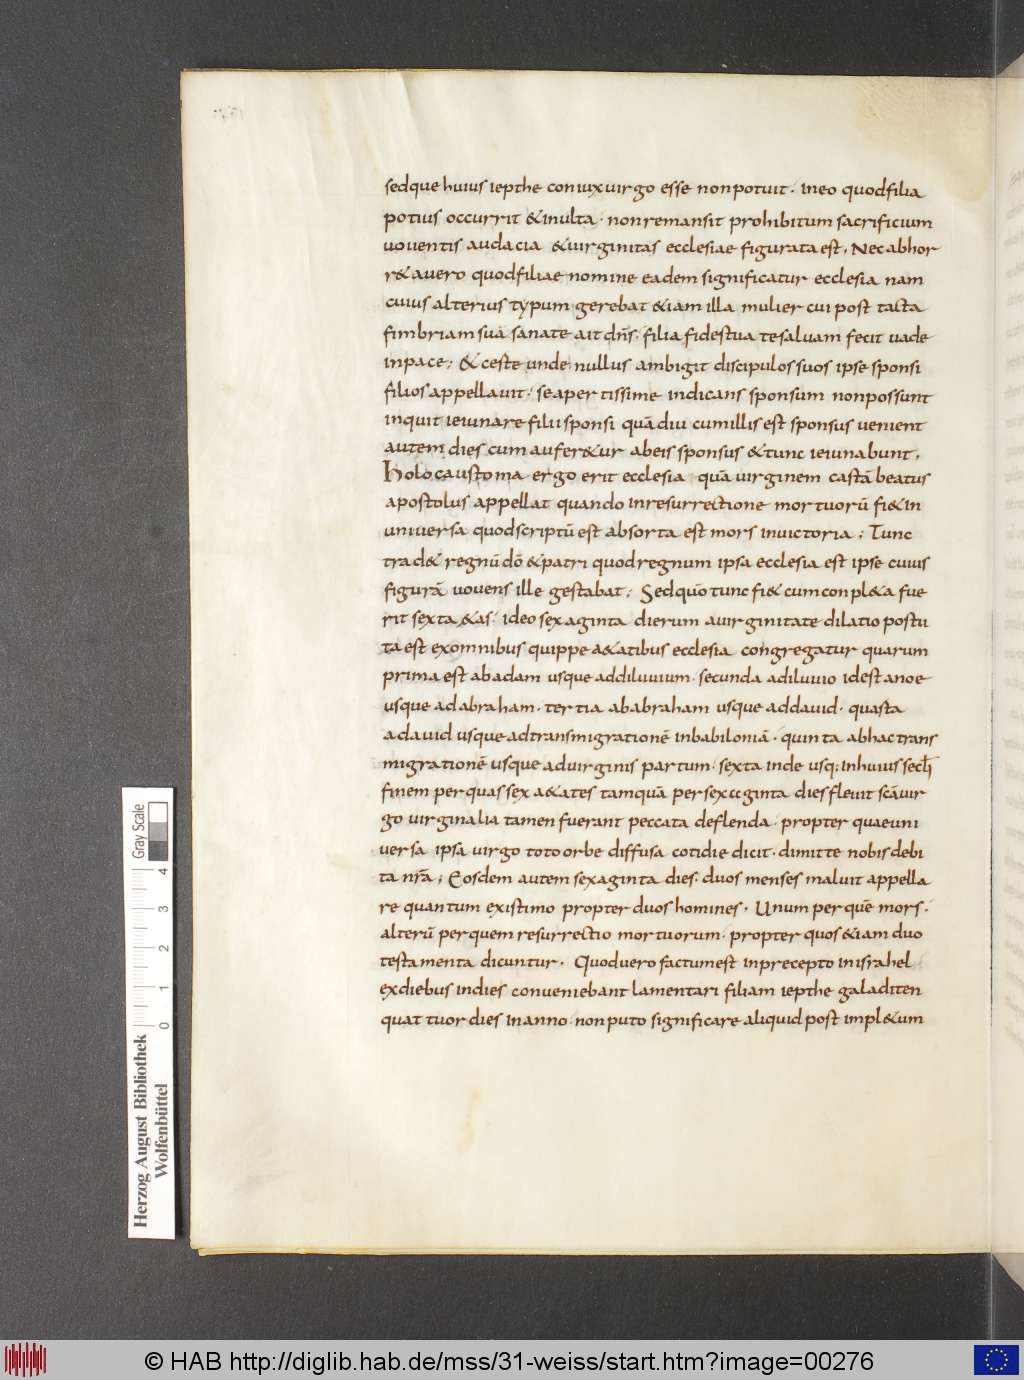 sedque huius iepthe coniux uirgo esse non potuit · in eo quod filia
potius occurrit & inulta · non remansit prohibitum sacrificium
uouentis audacia & uirginitas ecclesiae figurata est, Nec abhor
r& a uero quod filiae nomine eadem significatur ecclesia nam
cuius alterius typum gerebat &iam illa mulier cui post tacta
fimbriam suā sanate ait dn̄s · filia fides tua te saluam fecit uade
in pace; & ceste unde nullus ambigit discipulos suos ipse sponsi
filios appellauit · se apertissime indicans sponsum non possunt
inquit ieiunare filii sponsi quādiu cum illis est sponsus uenient
autem dies cum aufer&ur ab eis sponsus & tunc ieiunabunt,
holocaustoma ergo erit ecclesia quā uirginem castā beatus
apostolus appellat quando in resurrectione mortuorū fi& in
uniuersa quod scriptū est absorta est mors in uictoria; Tunc
trad& regnū dō & patri quod regnum ipsa ecclesia est ipse cuius
figurā uouens ille gestabat; Sed quō tunc fi& cum conpl&a fue
rit sexta &as · ideo sexaginta dierum a uirginitate dilatio postu
ta est ex omnibus quippe a&atibus ecclesia congregatur quarum
prima est ab adam usque ad diluuium · secunda a diluuio id est a noe
usque ad abraham · tertia ab abraham usque ad dauid · quasta
a dauid usque ad transmigrationē in babiloniā · quinta ab hac trans
migrationē usque ad uirginis partum · sexta inde usq; in huius secl̄i
finem per quas sex a&ates tamquā per sexaginta dies fleuit scā uir
go uirginalia tamen fuerant peccata deflenda · propter quae uni
uersa ipsa uirgo toto orbe diffusa cotidie dicit · dimitte nobis debi
ta nr̄a; Eosdem autem sexaginta dies · duos menses maluit appella
re quantum existimo propter duos homines · Unum per quē mors ·
alterū per quem resurrectio mortuorum · propter quos &iam duo
testamenta dicuntur · Quod uero factum est in precepto in israhel
ex diebus in dies conueniebant lamentari filiam iepthe galaditen
quattuor dies in anno · non puto significare aliquid post impl&um
Herzog August Bibliothek
Wolfenbüttel
0 1 2 3 4
Gray Scale
© HAB http://diglib.hab.de/mss/31-weiss/start.htm?image=00276